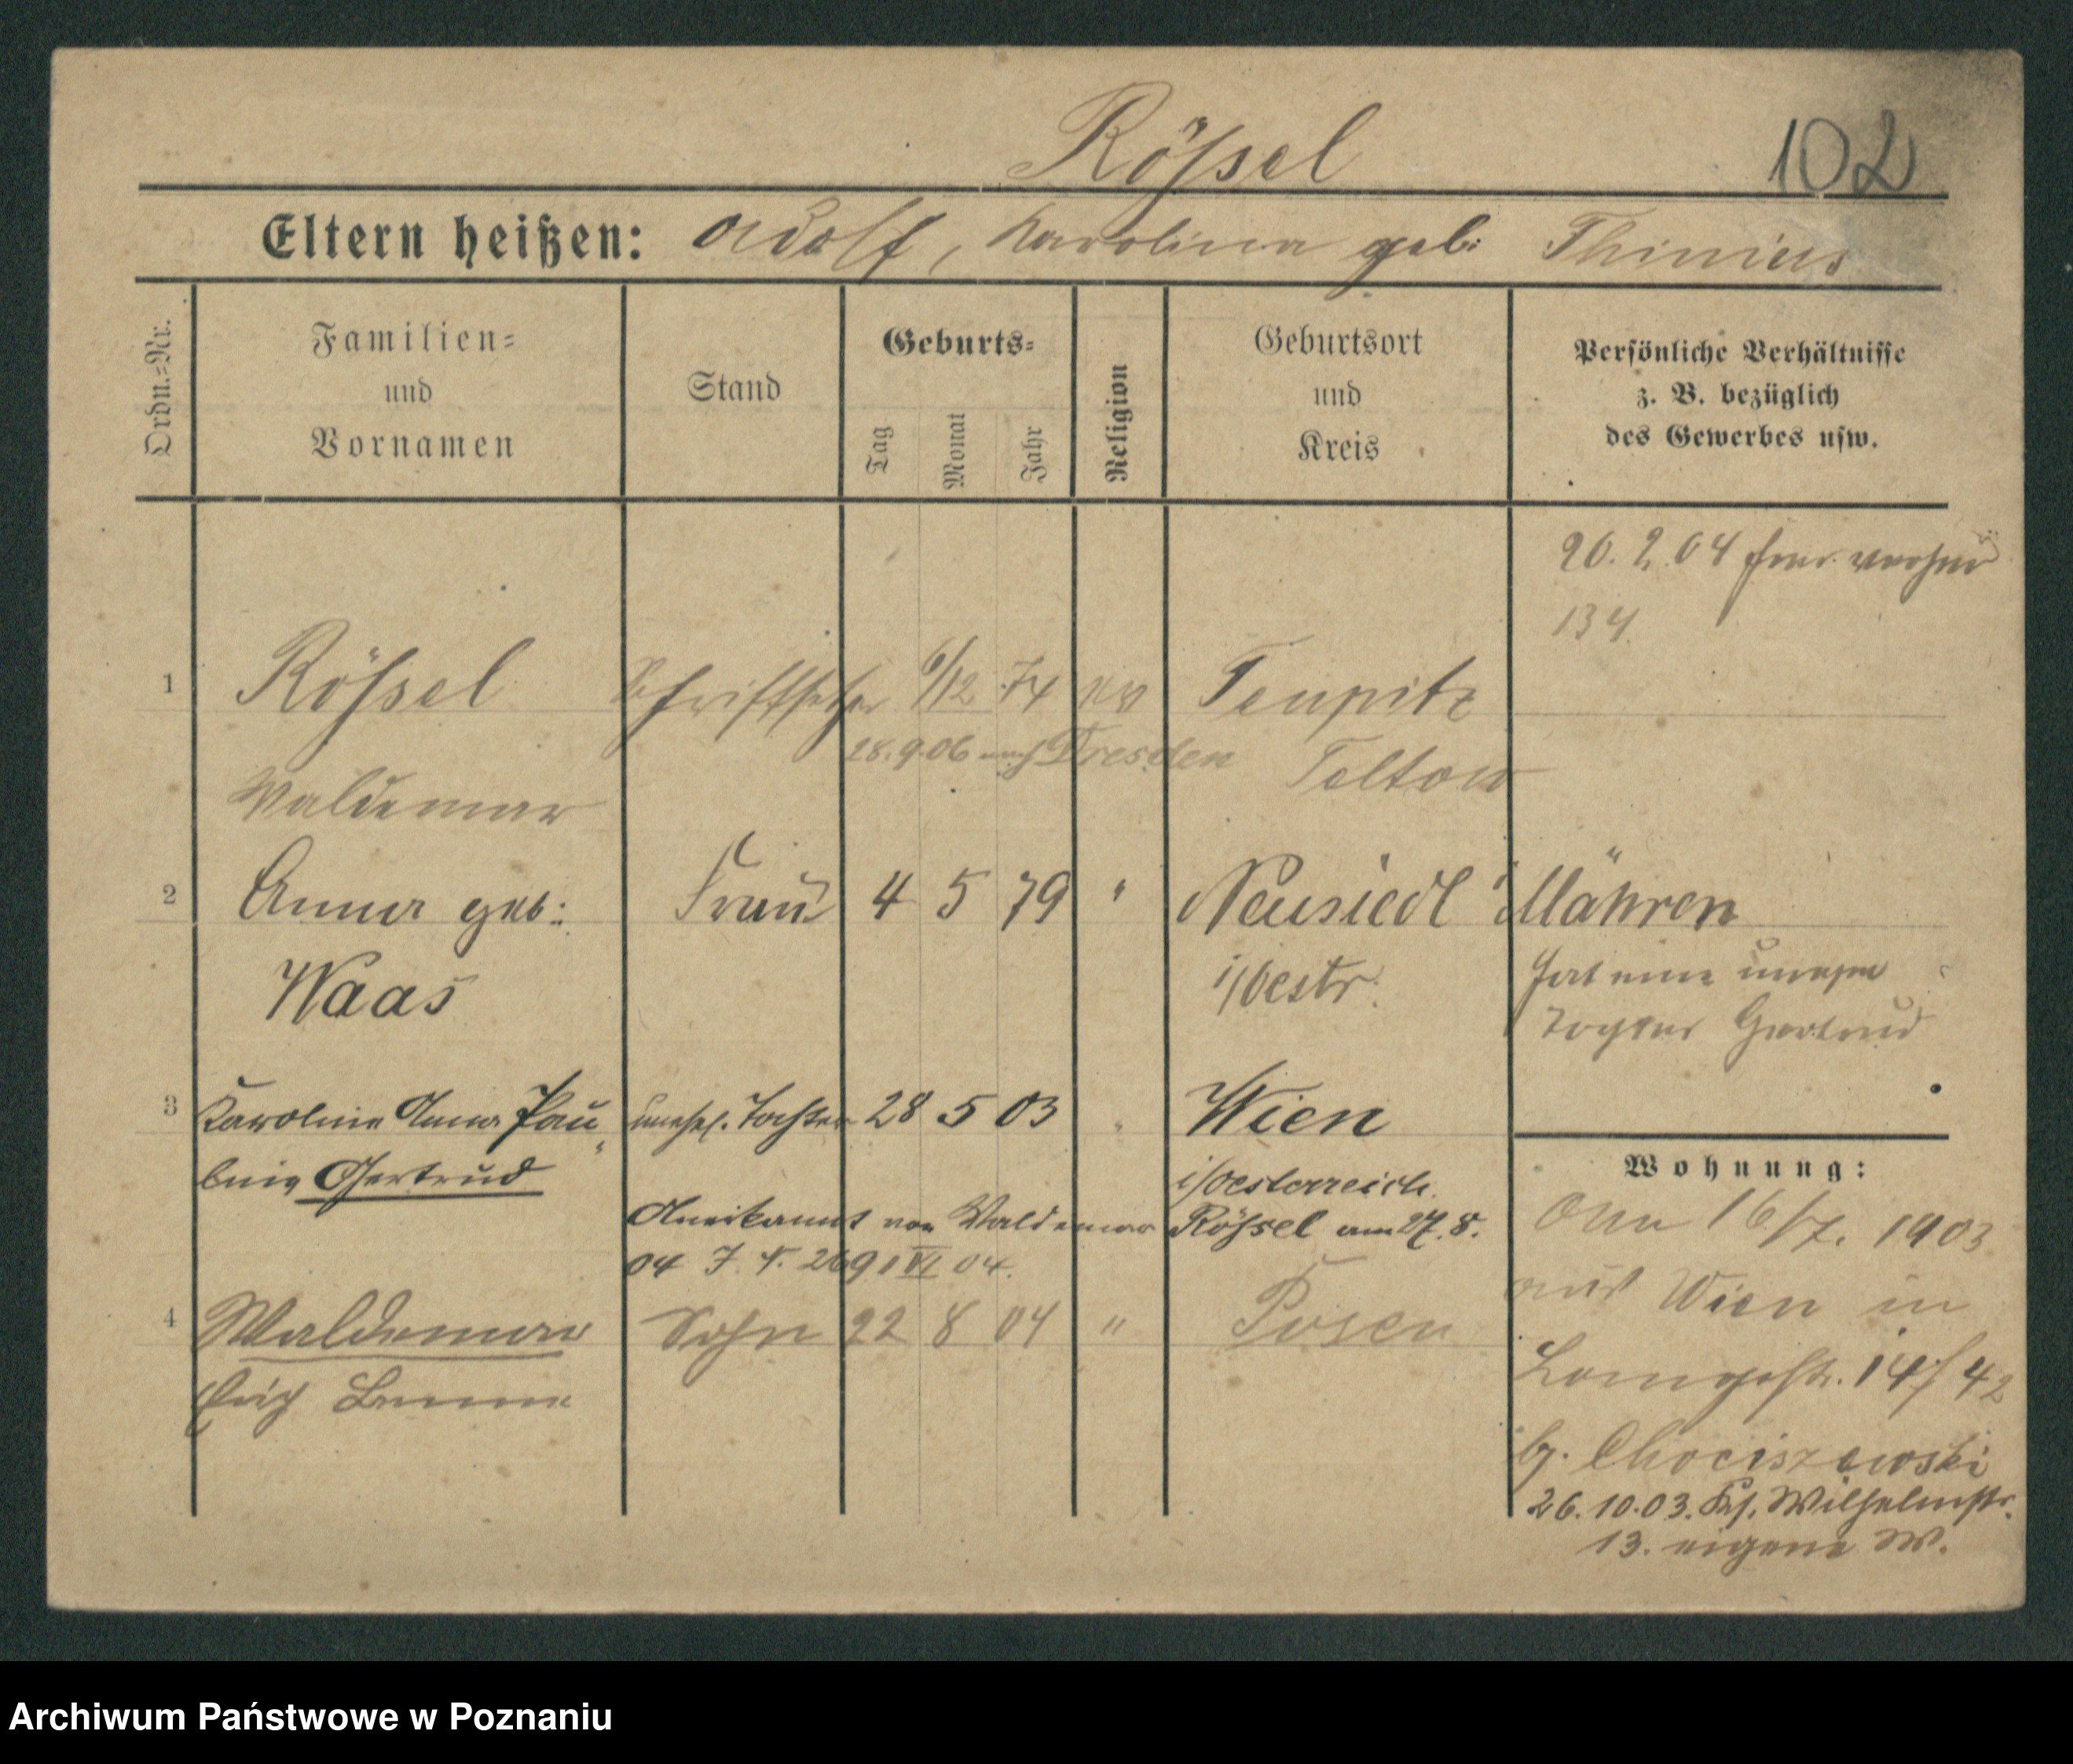 Rößel
102
Eltern heißen: Adolf, Karolina geb: Thinius
Ordn.=Nr.
Familien=
und
Vornamen
Stand
Geburts=
Tag
Monat
Jahr
Religion
Geburtsort
und
Kreis
Persönliche Verhältnisse
z. B. bezüglich
des Gewerbes usw.
20. 2. 04
134.
1 Rößel Schriftsetzer 6/12 74 Teupitz
28.9.06 nach Dresden Teltow
Waldemar
2 Anna geb: Frau 4 5 79 " Neusiedl i Mähren
Waas i/Oestr.
Hat eine unehel
Tochter Gertrud
3 Karoline Anna Pau„ unehel. Tochter 28 5 03 " Wien
line Gertrud i/Oesterreich.
Anerkannt von Waldemar Rößel am 27. 8.
04 J. N. 2691 VI 04.
4 Waldemar Sohn 22 8 04 " Posen
Erich
Wohnung:
Am 16/7. 1903
aus Wien in
Langestr. 14/42
b. Chociszewski
26. 10. 03. Wilhelmstr.
13. eigene W.
Archiwum Państwowe w Poznaniu